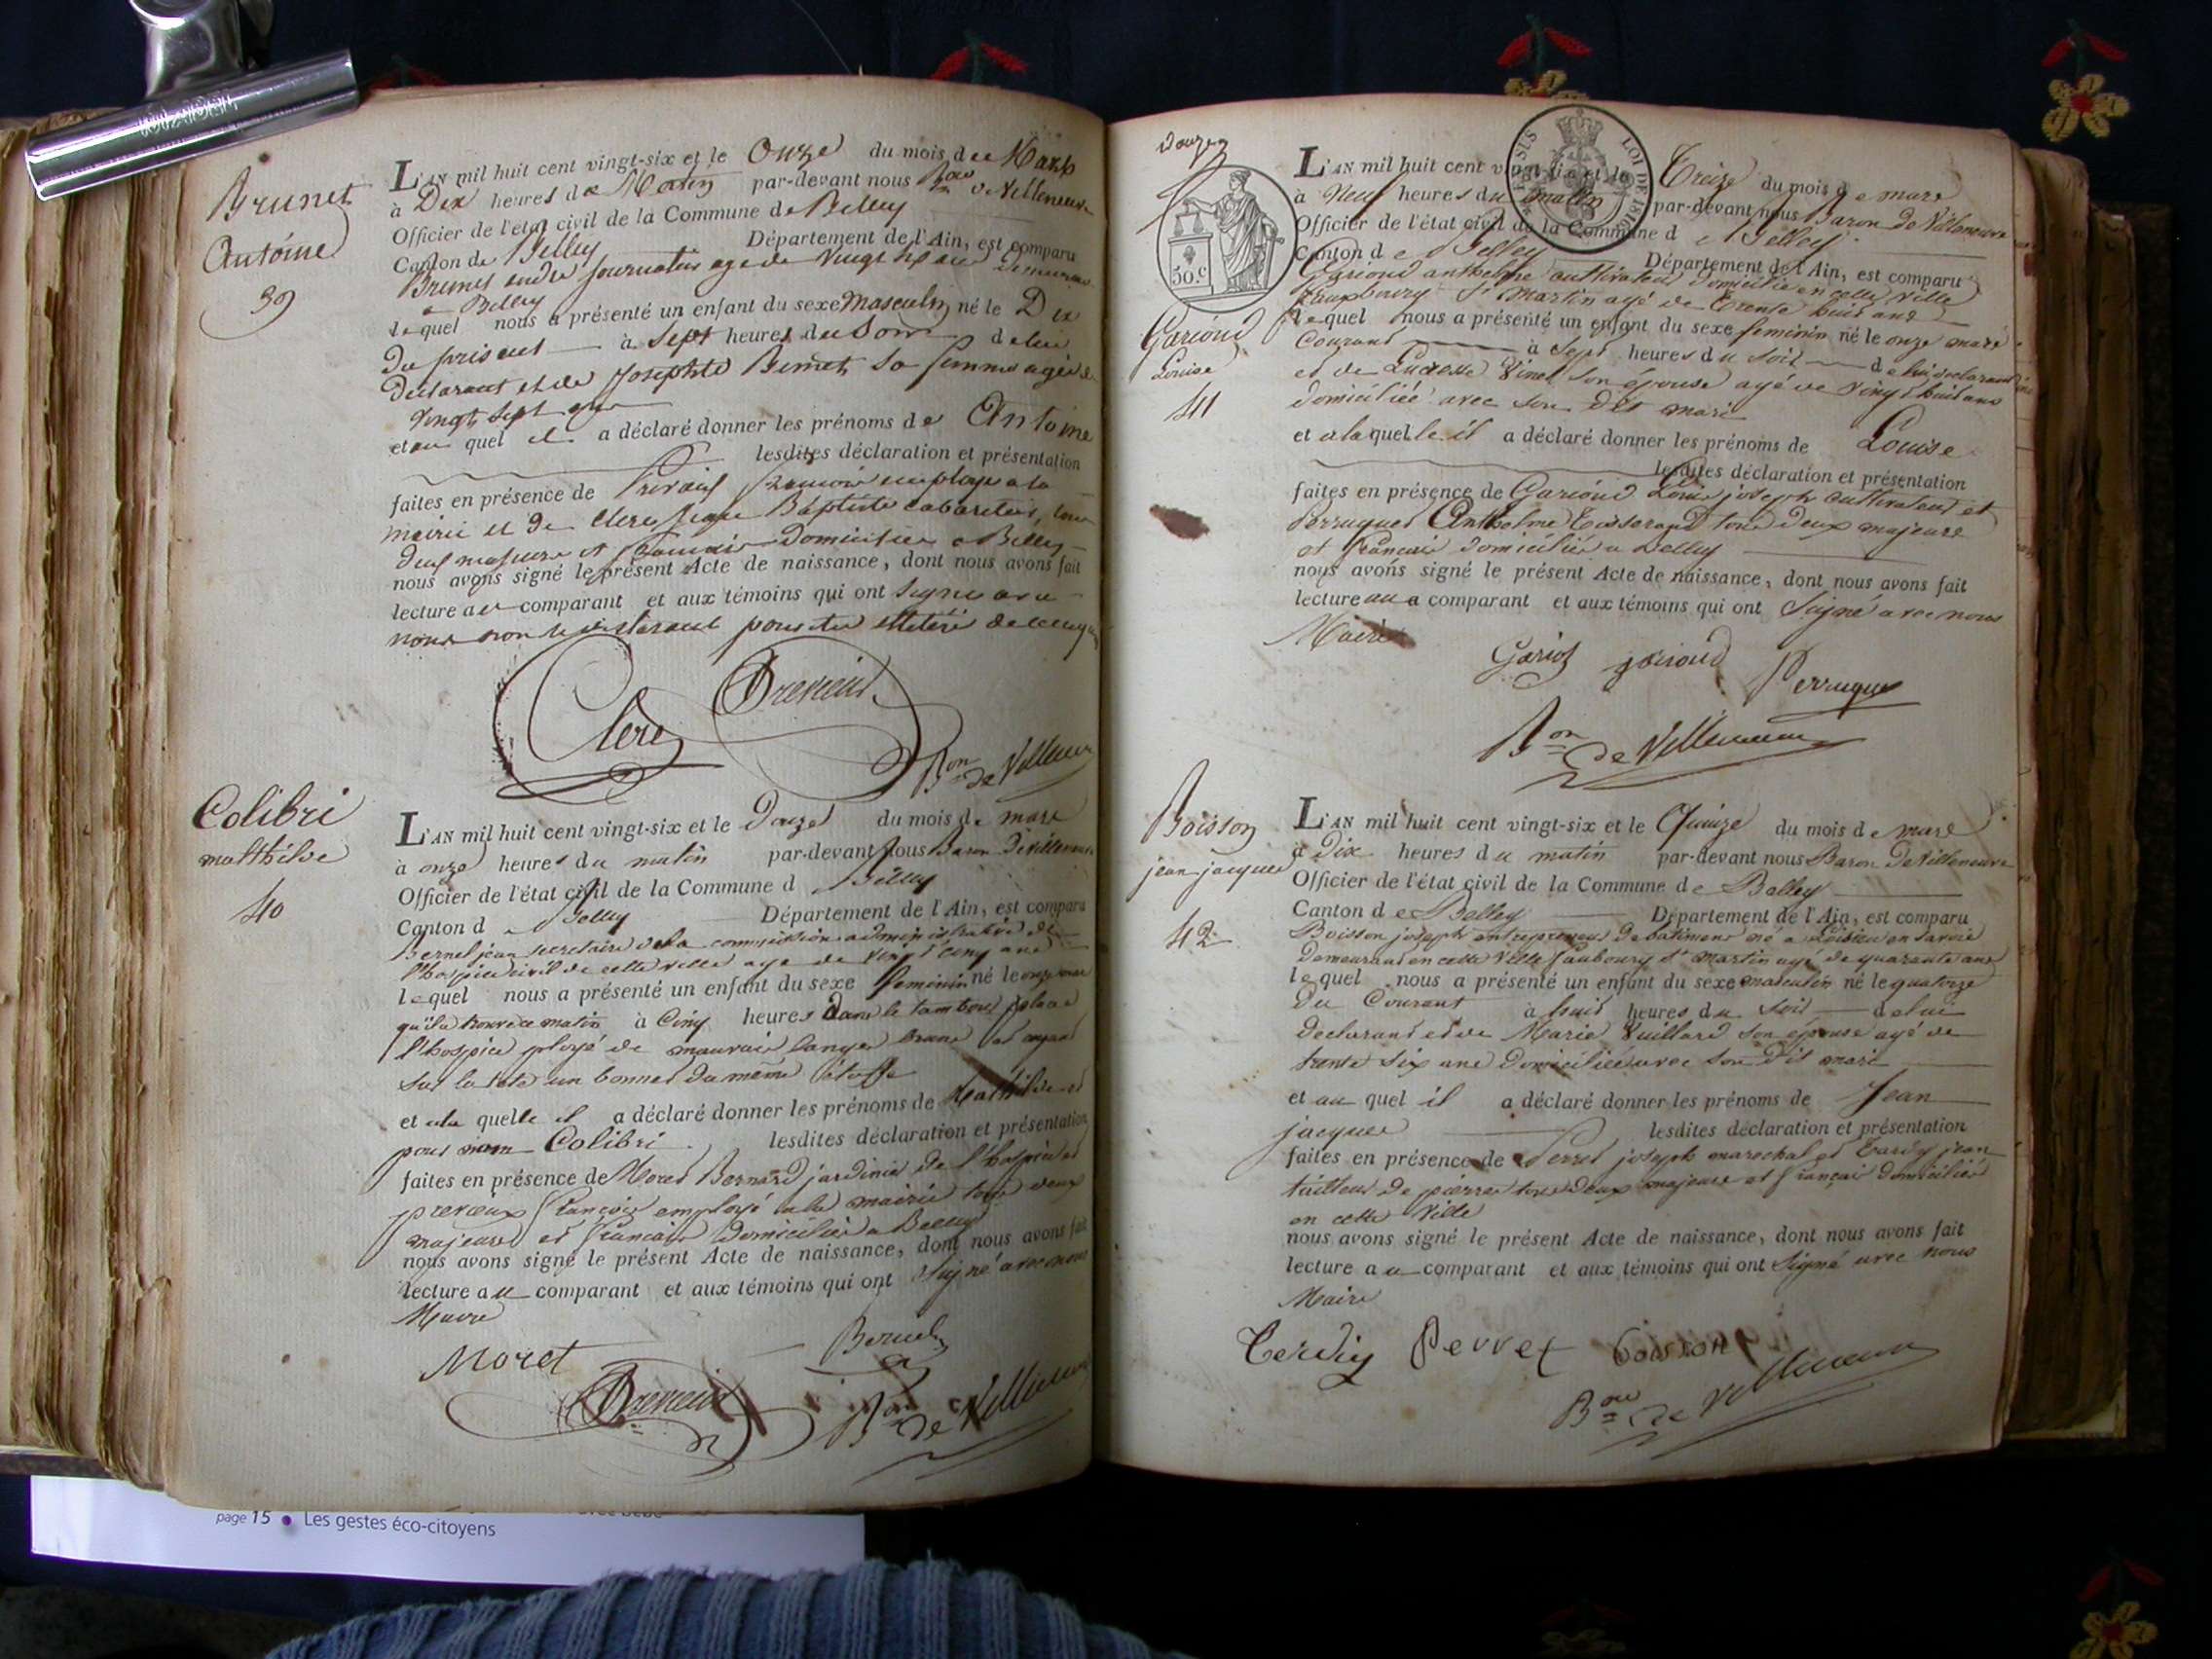 Brunet
Antoine
39
L'AN mil huit cent vingt-six et le Onze du mois de Mars
à Dix heures du Matin par-devant nous Bon de Villeneuve
Officier de l'état civil de la Commune de Belley
Canton de Belley Département de l'Ain, est comparu
Brunet journalier agé de vingt
a Belley
lequel nous a présenté un enfant du sexe Masculin né le Dix
du présent à Sept heures du Soir de lui
Déclarant et de Josephte Bernet sa femme agée de
vingt sept ans
et au quel il a déclaré donner les prénoms de Antoine
lesdites déclaration et présentation
faites en présence de employé a la
mairie et de Clerc Jean Baptiste cabaretier, tous
deux majeurs et français Domiciliés a Belley
nous avons signé le présent Acte de naissance, dont nous avons fait
lecture au comparant et aux témoins qui ont signé avec
nous non le déclarant pour être illitéré de ce enquis
Clerc
Bon de Villeneuve
Colibri
mathilde
40
L'AN mil huit cent vingt-six et le Douze du mois de mars
à onze heures du matin par-devant nous Baron De villeneuve
Officier de l'état civil de la Commune de Belley
Canton de Belley Département de l'Ain, est comparu
Bernel jean secretaire de la commission administrative de
l'hospice civil de cette ville agé de vingt cinq ans
lequel nous a présenté un enfant du sexe feminin né le onze mars
qu'il a trouvé ce matin à Cinq heures Dans le tambour placé a
l'hospice ployé de mauvais langes bruns et ayant
sur la tête un bonnet du même étoffe
et a la quelle il a déclaré donner les prénoms de Mathilde et
pour nom Colibri lesdites déclaration et présentation
faites en présence de Moret Bernard jardinier de l'hospice et
preveux françois employé a la mairie tous deux
majeurs et français Domiciliés a Belley
nous avons signé le présent Acte de naissance, dont nous avons fait
lecture au comparant et aux témoins qui ont signé avec nous
Maire
Moret Bernel
Bon de Villeneuve
Douze
SIS LOI DE 181
50.c
Garioud
Louise
41
L'AN mil huit cent vingt-six et le Treize du mois de mars
à Neuf heures du matin par-devant nous Baron De Villeneuve
Officier de l'état civil de la Commune de Belley
Canton de Belley Département de l'Ain, est comparu
Garioud anthelme cultivateur domicilié en cette ville
fauxbourg St Martin agé de Trente huit ans
lequel nous a présenté un enfant du sexe feminin né le onze mars
Courant à Sept heures du soir de lui declarant
et de Lucresse Vinet son épouse agé de Vingt huit ans
domiciliée avec son dit mari
et a la quelle il a déclaré donner les prénoms de Louise
lesdites déclaration et présentation
faites en présence de Garioud Louis joseph cultivateur et
Perruquet Anthelme Tisserand tous deux majeurs
et français domiciliés a Belley
nous avons signé le présent Acte de naissance, dont nous avons fait
lecture au comparant et aux témoins qui ont Signé avec nous
Maire
garioud
Bon de Villeneuve
Boisson
jean jacques
42
L'AN mil huit cent vingt-six et le Quinze du mois de mars
à Dix heures du matin par-devant nous Baron De Villeneuve
Officier de l'état civil de la Commune de Belley
Canton de Belley Département de l'Ain, est comparu
Boisson joseph entrepreneur de batimens né a en savoie
demeurant en cette Ville faubourg St martin agé de quarante ans
lequel nous a présenté un enfant du sexe masculin né le quatorze
du Courant à huit heures du soir de lui
declarant et de Marie Vuillard son épouse agé de
trente six ans Domiciliée avec son Dit mari
et au quel il a déclaré donner les prénoms de Jean
jacques lesdites déclaration et présentation
faites en présence de Perret joseph marechal et Tardy jean
tailleur de pierres tous deux majeurs et français Domiciliés
en cette Ville
nous avons signé le présent Acte de naissance, dont nous avons fait
lecture au comparant et aux témoins qui ont signé avec nous
Maire
Terdiy Perret boisson
Bon de Villeneuve
page 15 • Les gestes éco-citoyens